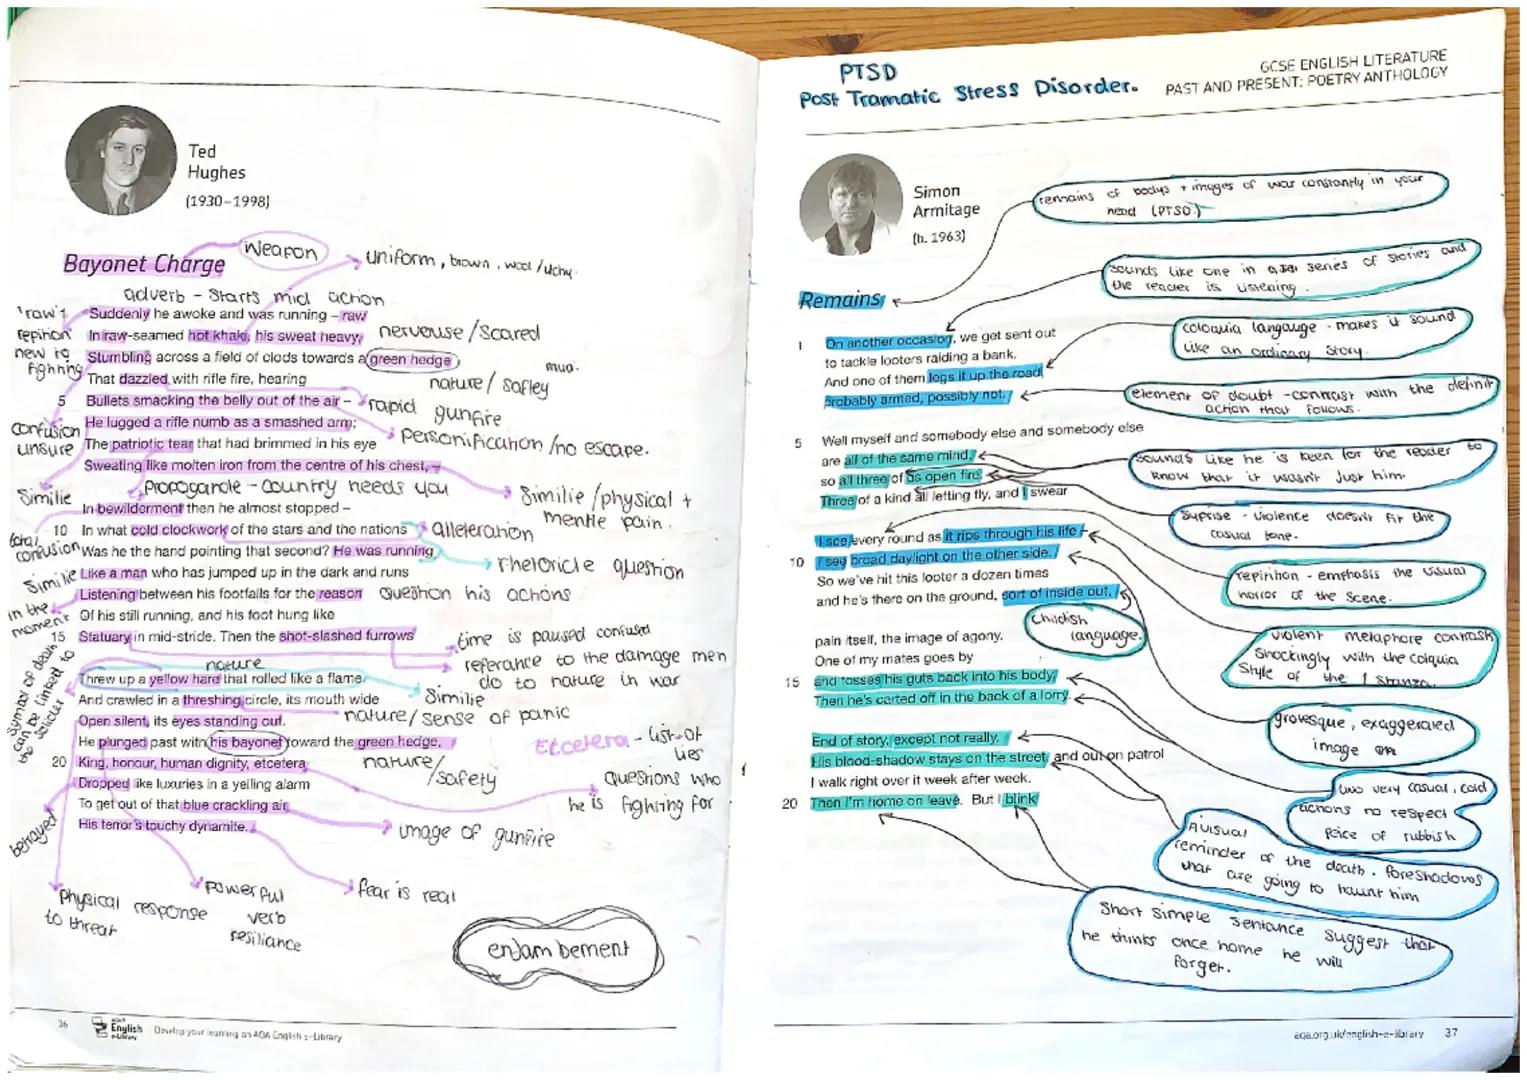 Ted
Hughes
(1930–1998)
Weapon
uniform, brown, wool / itchy.
Bayonet Charge
adverb - Starts mid action
'raw'
repition
new to
fighting
Suddenly he awoke and was running – raw
In raw-seamed hot khaki, his sweat heavy,
nervouse / Scared
Stumbling across a field of clods towards a green hedge
mud.
That dazzled with rifle fire, hearing
nature / safley
5 Bullets smacking the belly out of the air –
rapid gunfire
He lugged a rifle numb as a smashed arm;
personification / no escape.
confusion
unsure
The patriotic tear that had brimmed in his eye
Sweating like molten iron from the centre of his chest, –
Similie
propogande - country needs you
Similie / physical +
mentle pain.
In bewilderment then he almost stopped –
10 In what cold clockwork of the stars and the nations
alleteration
total
confusion
Was he the hand pointing that second? He was running
rhetoricle question
Similie
Like a man who has jumped up in the dark and runs
Listening between his footfalls for the reason
Question his actions
in the
moment
Of his still running, and his foot hung like
15 Statuary in mid-stride. Then the shot-slashed furrows
time is paused confused
referance to the damage men
do to nature in war
nature
Symbol of death
can be linked to
the solider
Threw up a yellow hare that rolled like a flame
Similie
And crawled in a threshing circle, its mouth wide
nature / sense of panic
Open silent, its eyes standing out.
He plunged past with his bayonet toward the green hedge,
nature / safety
Etcetera - list of
lies
20 King, honour, human dignity, etcetera
Questions who
he is fighting for
Dropped like luxuries in a yelling alarm
To get out of that blue crackling air
image of gunfire
betrayed
His terror's touchy dynamite.
physical response
to threat
powerful
verb
resiliance
fear is real
enjambement
36
English
e-Library
Develop your learning on AQA English e-Library
PTSD
Post Tramatic Stress Disorder.
GCSE ENGLISH LITERATURE
PAST AND PRESENT: POETRY ANTHOLOGY
Simon
Armitage
(b. 1963)
remains of bodys + images of war constantly in your
head (PTSD)
Sounds like one in a series of stories and
the reader is listening.
Remains
1 On another occasion, we get sent out
to tackle looters raiding a bank.
And one of them legs it up the road,
probably armed, possibly not.
coloquia langauge - makes it sound
like an ordinary story.
element of doubt - contrast with the definit
action that follows.
5 Well myself and somebody else and somebody else
are all of the same mind,
so all three of us open fire.
Three of a kind all letting fly, and I swear
Sounds like he is keen for the reader to
know that it wasnt just him.
Suprise - violence doesnt fit the
casual tone.
I see every round as it rips through his life –
10 I see broad daylight on the other side.
So we've hit this looter a dozen times
and he's there on the ground, sort of inside out,
repinhon - emphasis the visual
horror of the scene.
Childish
language.
violent metaphore contrask
shockingly with the colquia
style of the 1 stanza.
pain itself, the image of agony.
One of my mates goes by
15 and tosses his guts back into his body.
Then he's carted off in the back of a lorry.
grotesque, exaggerated
image
End of story, except not really.
His blood-shadow stays on the street, and out on patrol
I walk right over it week after week.
20 Then I'm home on leave. But I blink
two very casual, cold
actions no respect
peice of rubbish
A visual
reminder of the death. foreshadows
that are going to haunt him
Short simple sentance suggest that
he thinks once home he will
forget.
aqa.org.uk/english-e-library 37